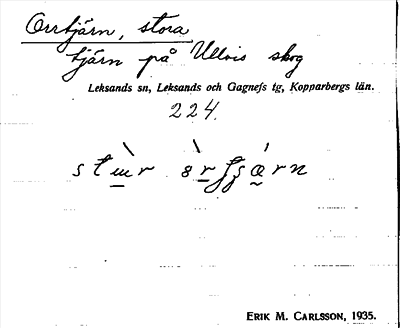 Orrtjärn, stora
tjärn på Ullvis skog
Leksands sn, Leksands och Gagnefs tg, Kopparbergs län.
224.
ERIK M. CARLSSON, 1935.